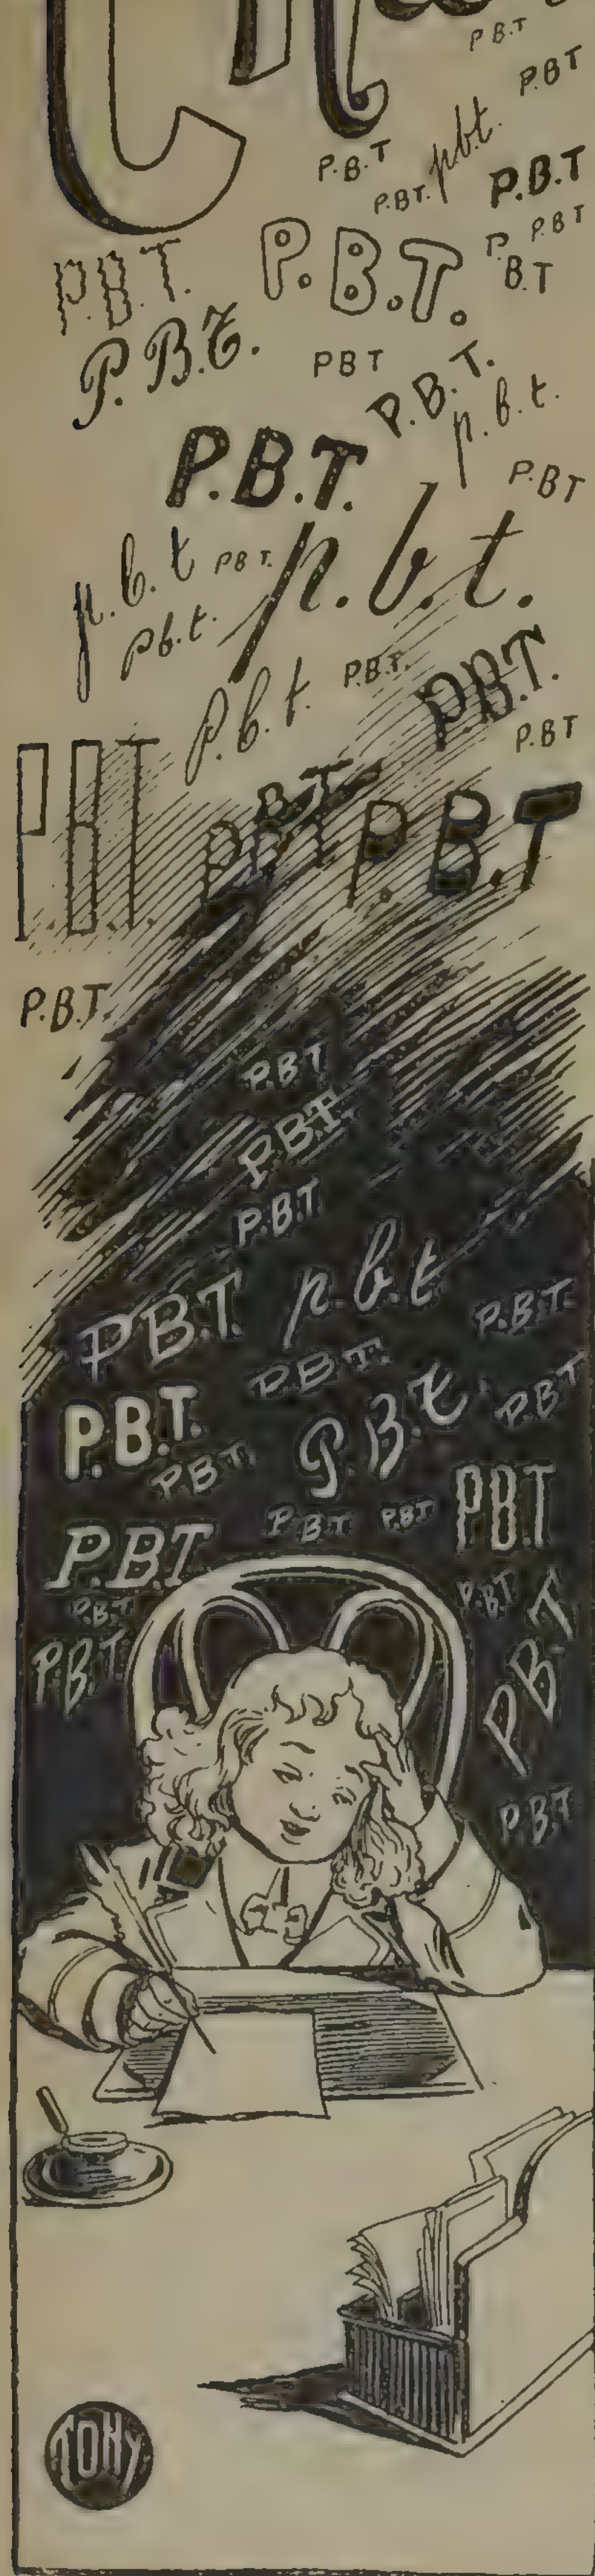 P.B.T
P.B.T
P.B.T
p.b.t.
P.B.T.
P.B.T
P.B.T
P.B.T.
P.B.T.
P.
B.T
P.B.T.
PBT
P.B.T.
p.b.t.
P.B.T.
P.BT
p.b.t
PBT.
p.b.t.
Pb.t.
P.b.t.
P.B.T.
P.B.T.
P.BT
P.B.T.
P.B.T
P.B.T
P.B.T.
P.B.T
P.B.T
P.B.T
P.B.T.
p.b.t
P.B.T.
P.B.T.
P.B.T.
P.B.t
P.B.T
P.B.T
P.B.T
P.B.T
P.B.T
P.B.T
P.B.T
P.B.T
P.B.T
P.B.T
P.B.T
TONY